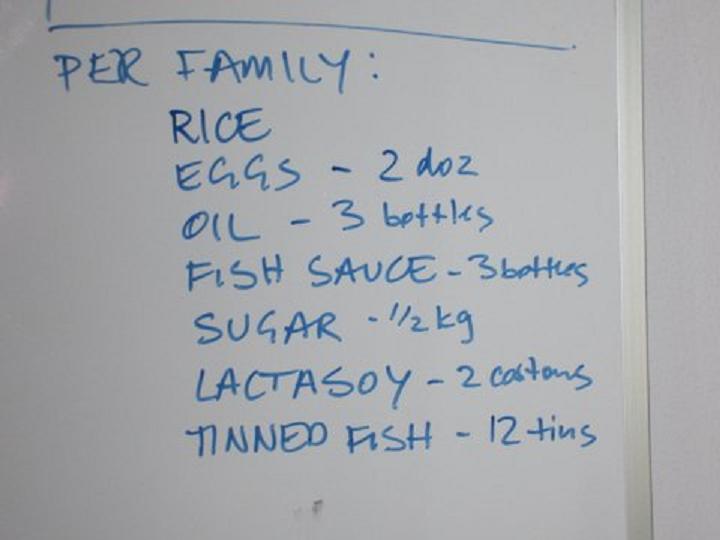 PER FAMILY:
RICE
EGGS - 2 doz
OIL - 3 bottles
FISH SAUCE - 3 bottles
SUGAR - 1/2 kg
LACTASOY - 2 cartons
TINNED FISH - 12 tins